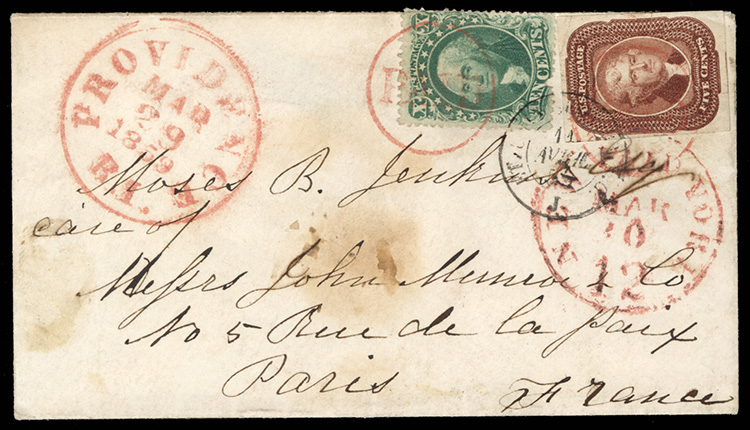 PROVIDENCE
MAR
29
1859
R.I.
X TEN CENTS X
U.S. POSTAGE
FIVE CENTS
PAID
11
AVRIL
NEW YORK
MAR
30
12
Moses B. Jenkins
care of
Messrs John Munroe & Co
No 5 Rue de la Paix
Paris
France